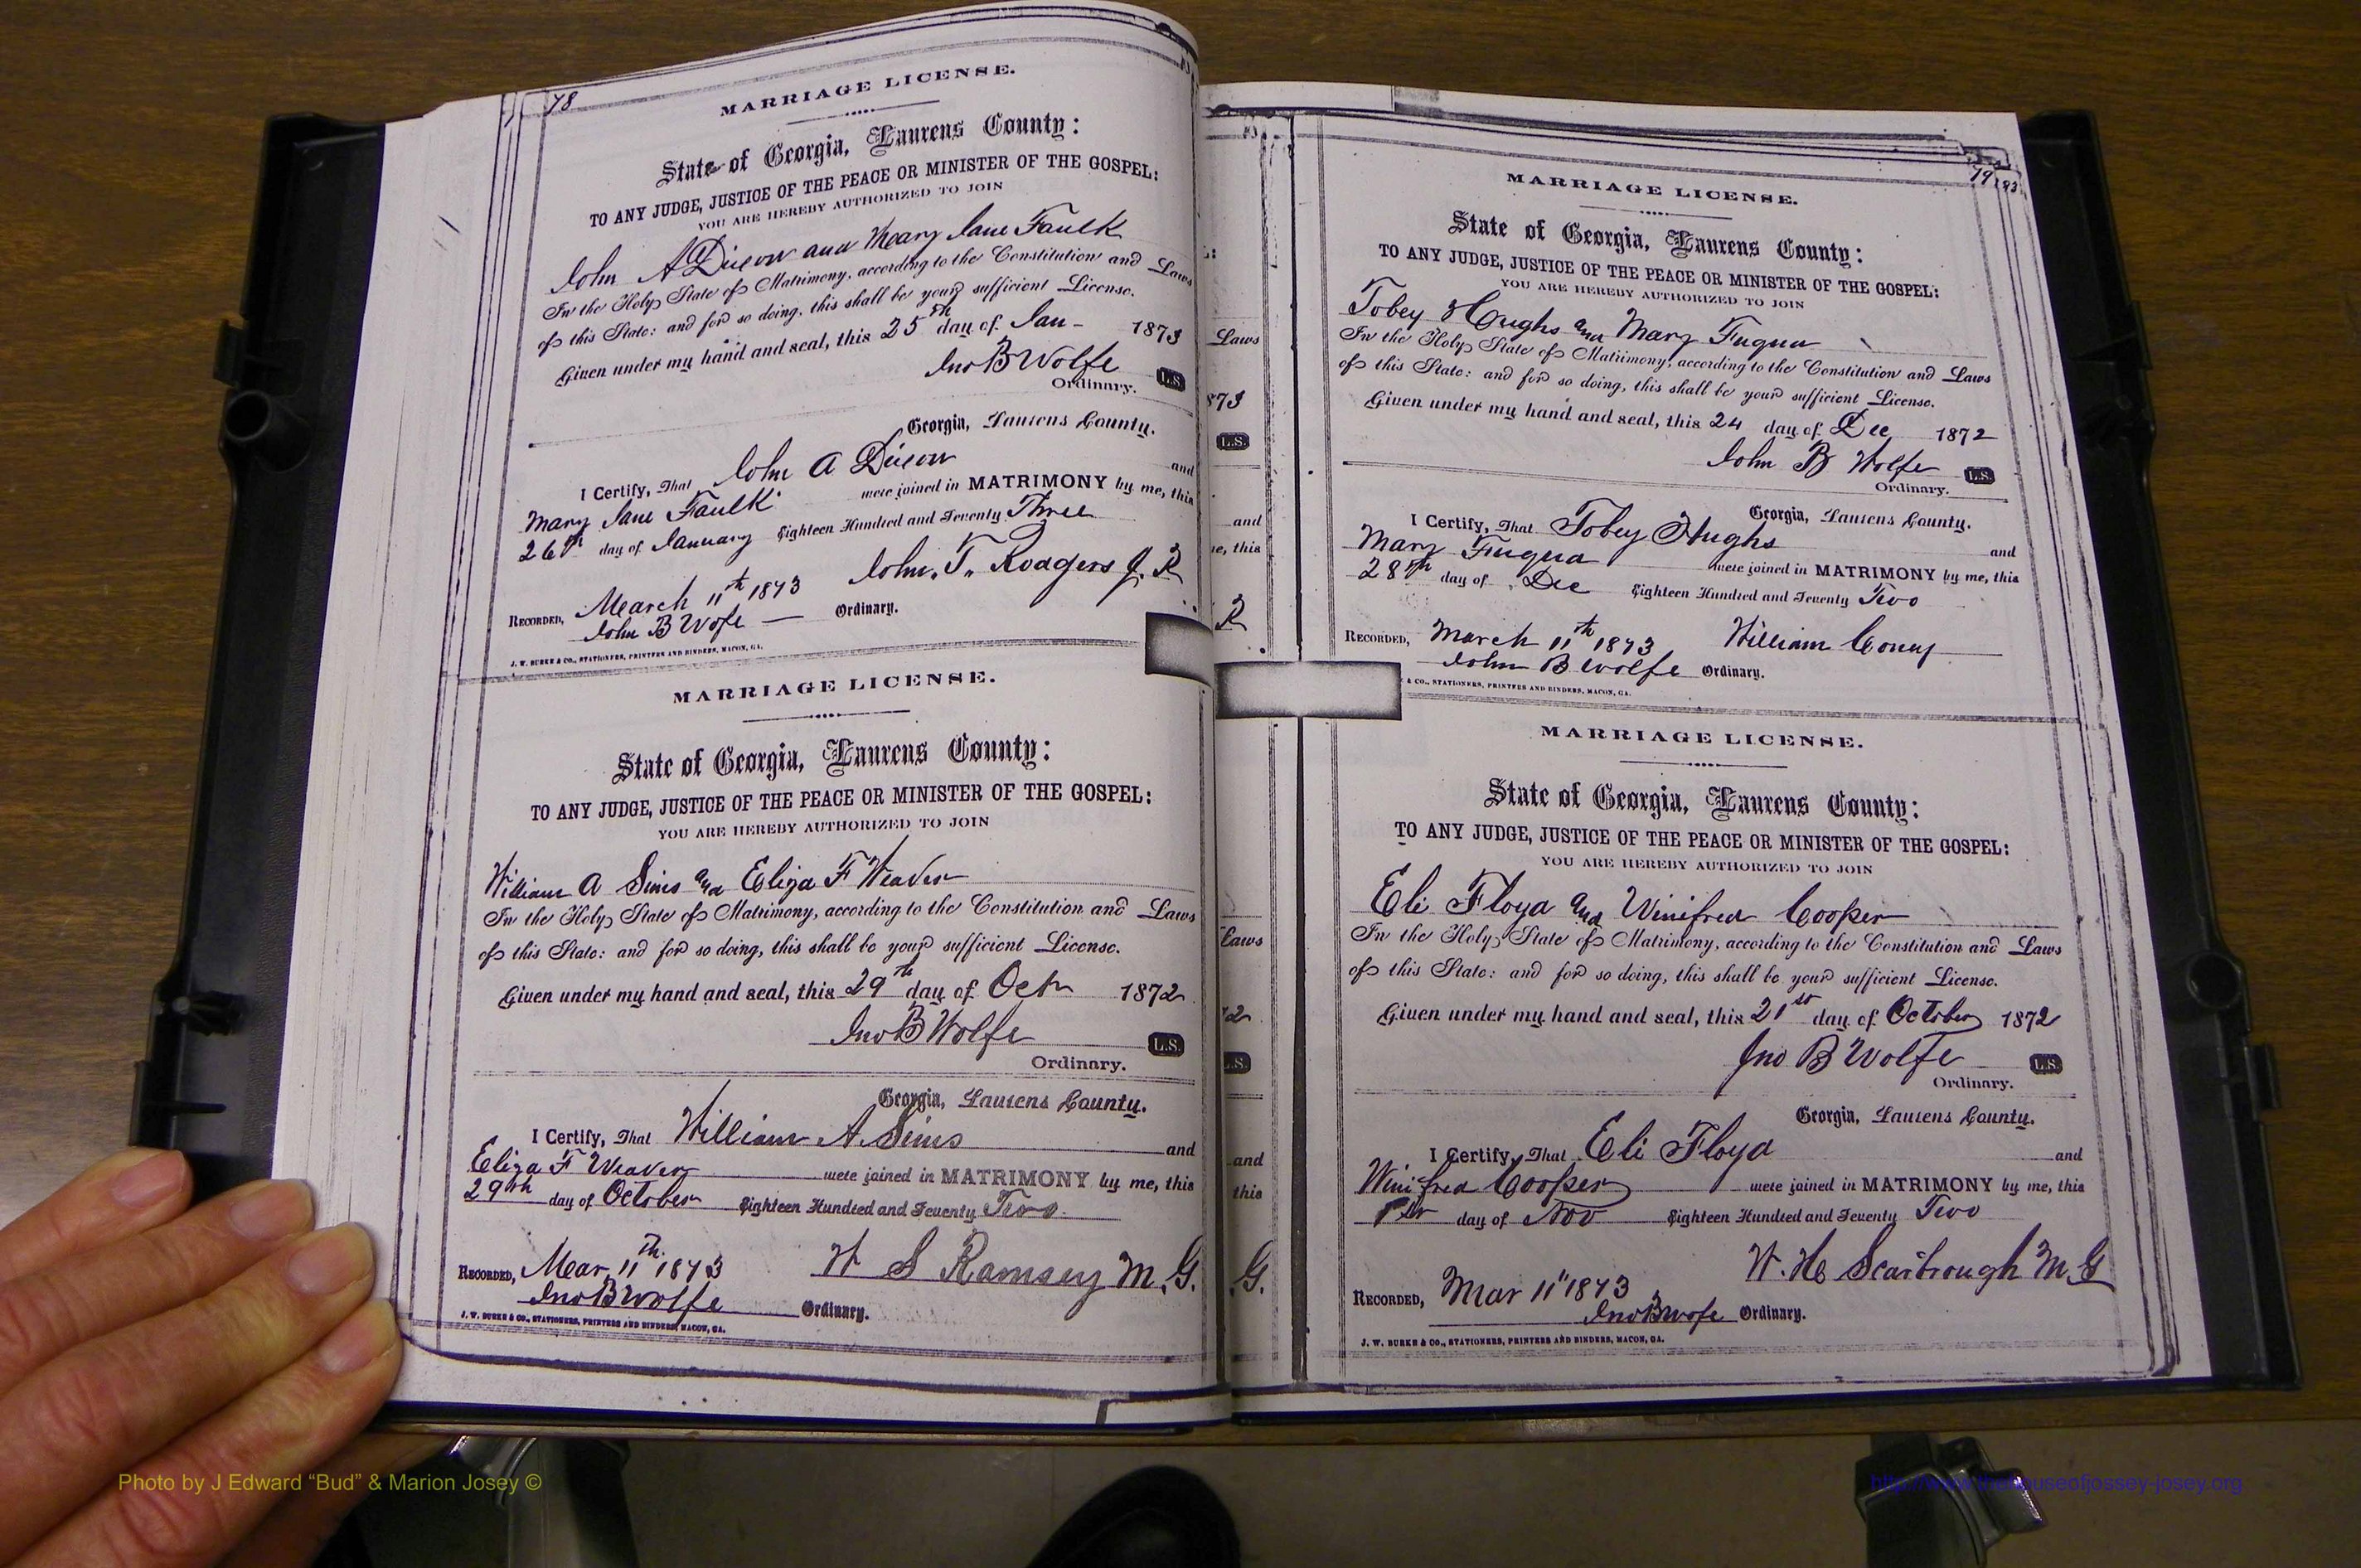 78
MARRIAGE LICENSE.
State of Georgia, Laurens County:
TO ANY JUDGE, JUSTICE OF THE PEACE OR MINISTER OF THE GOSPEL:
YOU ARE HEREBY AUTHORIZED TO JOIN
John A Dixon and Mary Jane Faulk
In the Holy State of Matrimony, according to the Constitution and Laws
of this State: and for so doing, this shall be your sufficient License.
Given under my hand and seal, this 25th day of Jan - 1873
Jno B Wolfe L.S.
Ordinary.
Georgia, Laurens County.
I Certify, That John A Dixon and
Mary Jane Faulk were joined in MATRIMONY by me, this
26th day of January Eighteen Hundred and Seventy Three
John. T. Rodgers J. P.
RECORDED, March 11th 1873
John B Wofe — Ordinary.
J. W. BURKE & CO., STATIONERS, PRINTERS AND BINDERS, MACON, GA.
MARRIAGE LICENSE.
State of Georgia, Laurens County:
TO ANY JUDGE, JUSTICE OF THE PEACE OR MINISTER OF THE GOSPEL:
YOU ARE HEREBY AUTHORIZED TO JOIN
William A Sims and Eliza F Weaver
In the Holy State of Matrimony, according to the Constitution and Laws
of this State: and for so doing, this shall be your sufficient License.
Given under my hand and seal, this 29th day of Octr 1872
Jno B Wolfe L.S.
Ordinary.
Georgia, Laurens County.
I Certify, That William A. Sims and
Eliza F Weaver were joined in MATRIMONY by me, this
29th day of October Eighteen Hundred and Seventy Two
W S Ramsey M.G.
RECORDED, Mar. 11th 1873
Jno B Wolfe Ordinary.
J. W. BURKE & CO., STATIONERS, PRINTERS AND BINDERS, MACON, GA.
Laws
873
L.S.
and
e, this
Laws
72
L.S.
and
this
G.
79
MARRIAGE LICENSE.
State of Georgia, Laurens County:
TO ANY JUDGE, JUSTICE OF THE PEACE OR MINISTER OF THE GOSPEL:
YOU ARE HEREBY AUTHORIZED TO JOIN
Tobey Hughs and Mary Fuqua
In the Holy State of Matrimony, according to the Constitution and Laws
of this State: and for so doing, this shall be your sufficient License.
Given under my hand and seal, this 24 day of Dec 1872
John B Wolfe L.S.
Ordinary.
Georgia, Laurens County.
I Certify, That Tobey Hughs and
Mary Fuqua were joined in MATRIMONY by me, this
28th day of Dec Eighteen Hundred and Seventy Two
William
RECORDED, March 11th 1873
John B Wolfe Ordinary.
& CO., STATIONERS, PRINTERS AND BINDERS, MACON, GA.
MARRIAGE LICENSE.
State of Georgia, Laurens County:
TO ANY JUDGE, JUSTICE OF THE PEACE OR MINISTER OF THE GOSPEL:
YOU ARE HEREBY AUTHORIZED TO JOIN
Eli Floyd and Winifred Cooper
In the Holy State of Matrimony, according to the Constitution and Laws
of this State: and for so doing, this shall be your sufficient License.
Given under my hand and seal, this 21st day of October 1872
Jno B Wolfe L.S.
Ordinary.
Georgia, Laurens County.
I Certify, That Eli Floyd and
Winifred Cooper were joined in MATRIMONY by me, this
1st day of Nov Eighteen Hundred and Seventy Two
W. H. Scarbrough M.G
RECORDED, Mar 11" 1873
Jno B Wofe Ordinary.
J. W. BURKE & CO., STATIONERS, PRINTERS AND BINDERS, MACON, GA.
Photo by J Edward “Bud” & Marion Josey ©
http://www.thehouseofjossey-josey.org